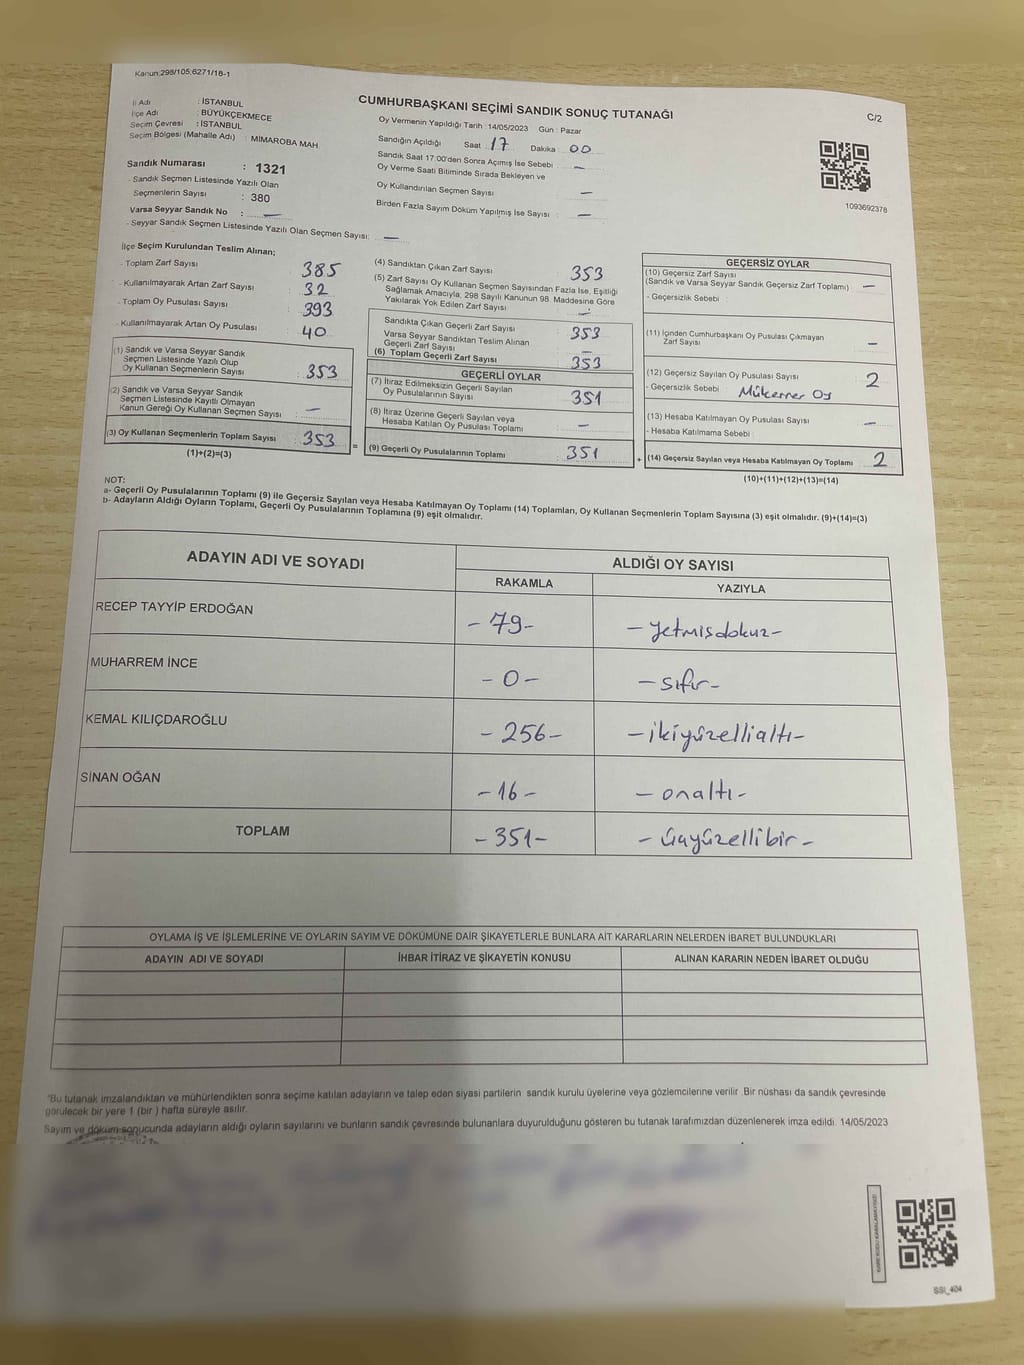 Kanun:298/105;6271/18-1
CUMHURBAŞKANI SEÇİMİ SANDIK SONUÇ TUTANAĞI
C/2
İl Adı : İSTANBUL
İlçe Adı : BÜYÜKÇEKMECE
Seçim Çevresi : İSTANBUL
Seçim Bölgesi (Mahalle Adı) : MİMAROBA MAH.
Sandık Numarası : 1321
- Sandık Seçmen Listesinde Yazılı Olan
Seçmenlerin Sayısı : 380
Varsa Seyyar Sandık No : —
- Seyyar Sandık Seçmen Listesinde Yazılı Olan Seçmen Sayısı: —
Oy Vermenin Yapıldığı Tarih :14/05/2023 Gün : Pazar
Sandığın Açıldığı Saat : 17 Dakika : 00
Sandık Saat 17.00'den Sonra Açımış İse Sebebi : —
Oy Verme Saati Bitiminde Sırada Bekleyen ve
Oy Kullandırılan Seçmen Sayısı : —
Birden Fazla Sayım Döküm Yapılmış İse Sayısı : —
1093692378
İlçe Seçim Kurulundan Teslim Alınan;
- Toplam Zarf Sayısı : 385
- Kullanılmayarak Artan Zarf Sayısı : 32
- Toplam Oy Pusulası Sayısı : 393
- Kullanılmayarak Artan Oy Pusulası : 40
(1) Sandık ve Varsa Seyyar Sandık
Seçmen Listesinde Yazılı Olup
Oy Kullanan Seçmenlerin Sayısı : 353
(2) Sandık ve Varsa Seyyar Sandık
Seçmen Listesinde Kayıtlı Olmayan
Kanun Gereği Oy Kullanan Seçmen Sayısı : —
(3) Oy Kullanan Seçmenlerin Toplam Sayısı : 353
(1)+(2)=(3)
=
(4) Sandıktan Çıkan Zarf Sayısı : 353
(5) Zarf Sayısı Oy Kullanan Seçmen Sayısından Fazla İse, Eşitliği
Sağlamak Amacıyla, 298 Sayılı Kanunun 98. Maddesine Göre
Yakılarak Yok Edilen Zarf Sayısı : —
Sandıkta Çıkan Geçerli Zarf Sayısı : 353
Varsa Seyyar Sandıktan Teslim Alınan
Geçerli Zarf Sayısı : —
(6) Toplam Geçerli Zarf Sayısı : 353
GEÇERLİ OYLAR
(7) İtiraz Edilmeksizin Geçerli Sayılan
Oy Pusulalarının Sayısı : 351
(8) İtiraz Üzerine Geçerli Sayılan veya
Hesaba Katılan Oy Pusulası Toplamı : —
(9) Geçerli Oy Pusulalarının Toplamı : 351
+
GEÇERSİZ OYLAR
(10) Geçersiz Zarf Sayısı
(Sandık ve Varsa Seyyar Sandık Geçersiz Zarf Toplamı) : —
- Geçersizlik Sebebi :
(11) İçinden Cumhurbaşkanı Oy Pusulası Çıkmayan
Zarf Sayısı : —
(12) Geçersiz Sayılan Oy Pusulası Sayısı : 2
- Geçersizlik Sebebi : Mükerrer Oy
(13) Hesaba Katılmayan Oy Pusulası Sayısı : —
- Hesaba Katılmama Sebebi :
(14) Geçersiz Sayılan veya Hesaba Katılmayan Oy Toplamı : 2
(10)+(11)+(12)+(13)=(14)
NOT:
a- Geçerli Oy Pusulalarının Toplamı (9) ile Geçersiz Sayılan veya Hesaba Katılmayan Oy Toplamı (14) Toplamları, Oy Kullanan Seçmenlerin Toplam Sayısına (3) eşit olmalıdır. (9)+(14)=(3)
b- Adayların Aldığı Oyların Toplamı, Geçerli Oy Pusulalarının Toplamına (9) eşit olmalıdır.
ADAYIN ADI VE SOYADI
ALDIĞI OY SAYISI
RAKAMLA YAZIYLA
RECEP TAYYİP ERDOĞAN -79- -yetmişdokuz-
MUHARREM İNCE -0- -sıfır-
KEMAL KILIÇDAROĞLU -256- -ikiyüzellialtı-
SİNAN OĞAN -16- -onaltı-
TOPLAM -351- -üçyüzellibir-
OYLAMA İŞ VE İŞLEMLERİNE VE OYLARIN SAYIM VE DÖKÜMÜNE DAİR ŞİKAYETLERLE BUNLARA AİT KARARLARIN NELERDEN İBARET BULUNDUKLARI
ADAYIN ADI VE SOYADI İHBAR İTİRAZ VE ŞİKAYETİN KONUSU ALINAN KARARIN NEDEN İBARET OLDUĞU
*Bu tutanak imzalandıktan ve mühürlendikten sonra seçime katılan adayların ve talep eden siyasi partilerin sandık kurulu üyelerine veya gözlemcilerine verilir. Bir nüshası da sandık çevresinde
görülecek bir yere 1 (bir ) hafta süreyle asılır.
Sayım ve döküm sonucunda adayların aldığı oyların sayılarını ve bunların sandık çevresinde bulunanlara duyurulduğunu gösteren bu tutanak tarafımızdan düzenlenerek imza edildi. 14/05/2023
KARE KODU KARALAMAYINIZ!
SSI_404